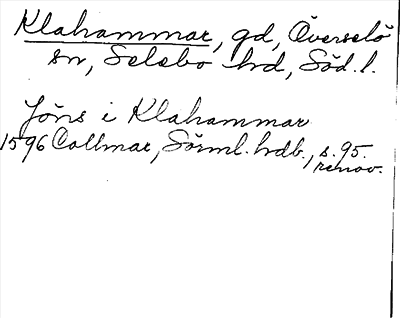 Klahammar, gd, Överselö
sn, Selebo hrd, Söd. l.
Jöns i Klahammar
1596 Collmar, Sörml. hrdb., s. 95.
renov.